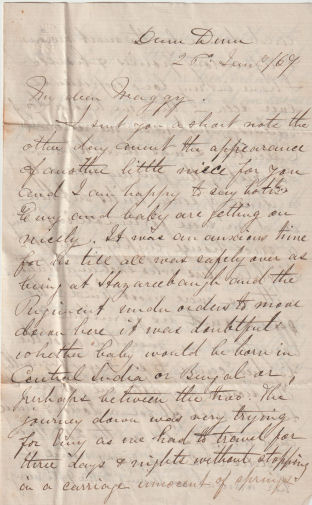 Dum Dum
2 Jany/69
My dear Maggy.
I sent you a short note the
other day anent the appearance
of another little niece for you
and I am happy to say both
Emy and baby are getting on
nicely. It was an anxious time
for us till all was safely over as
being at Hazareebaugh and the
Regiment under orders to move
down here it was doubtful
whether baby would be born in
Central India or Bengal or
perhaps between the two. The
journey down was very trying
for Emy as we had to travel for
three days & nights without stopping
in a carriage innocent of springs